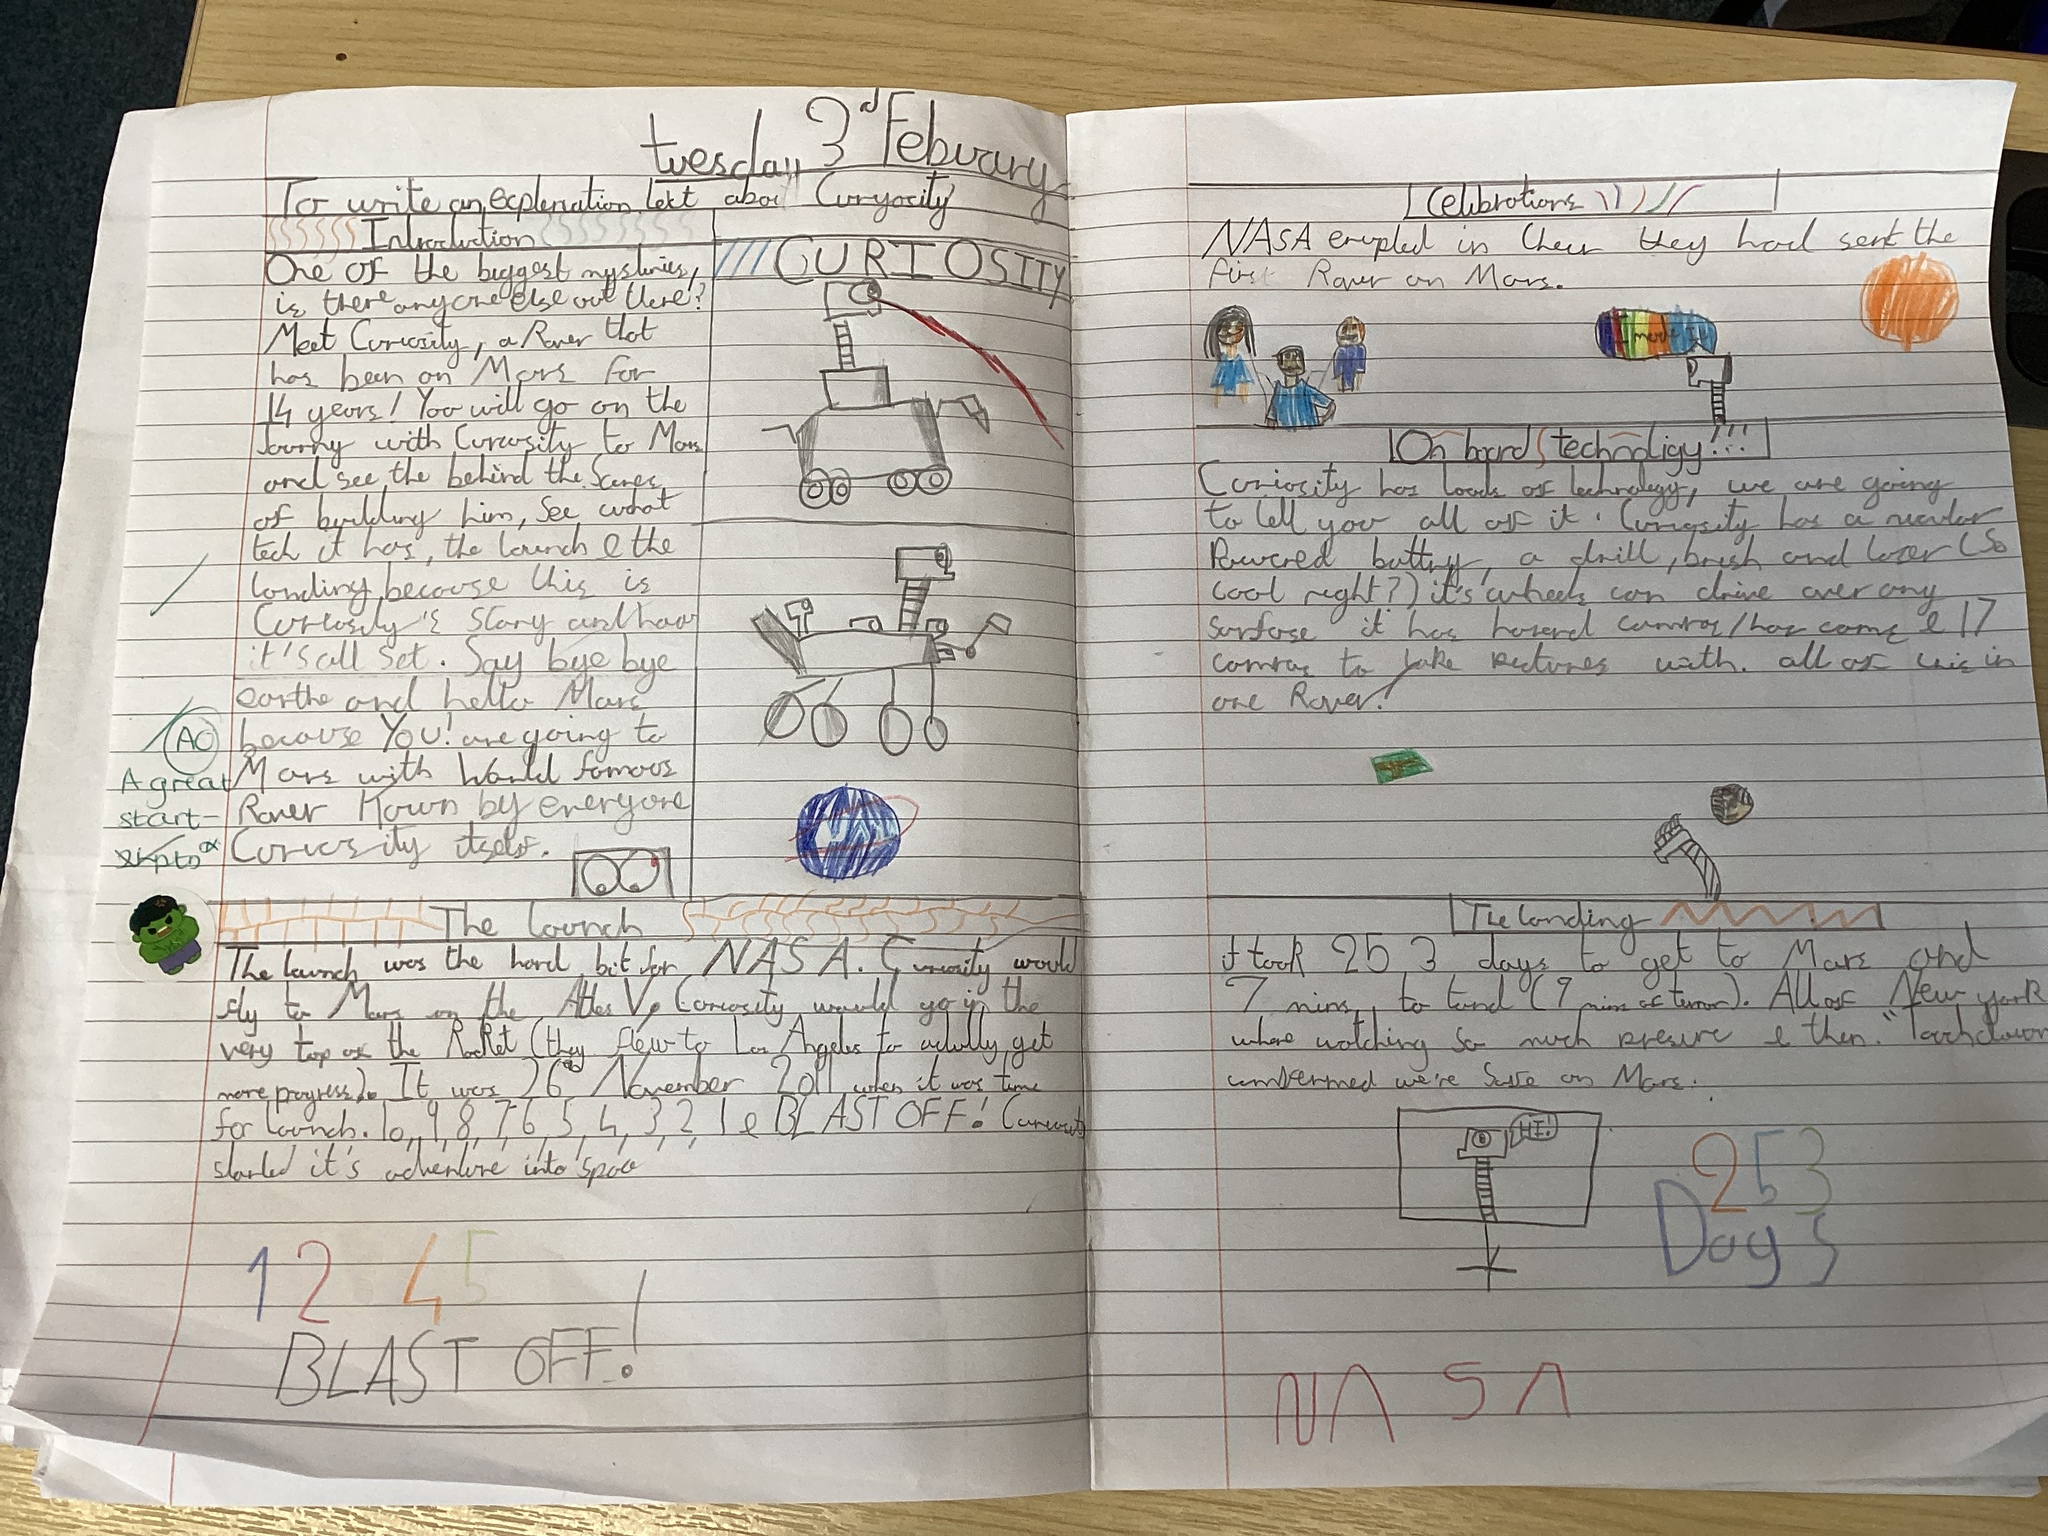 tuesday 3rd Feburary
To write an explenation text abou Curyosity
Introduction
One of the biggest mysteries,
is there anyone else out there?
Meet Curiosity, a Rover that
has been on Mars for
14 years! You will go on the
Journy with Curiosity to Mars
and see the behind the Scenes
of building him, See what
tech it has, the launch & the
landing because this is
Curiosity's Story and how
it's all set. Say bye bye
earthe and hello Mars
because You! are going to
Mars with World famous
Rover Kown by everyone
Curiosity itself.
CURIOSITY
AO
A great
start-
The launch
The launch was the hard bit for NASA. Curiosity would
fly to Mars on the Atles V, Curiosity would go in the
very top of the Rocket (they flew to Los Angeles to actully get
more progress). It was 26th November 2011 when it was time
for launch. 10, 9, 8, 7, 6, 5, 4, 3, 2, 1 & BLAST OFF!
started it's adventure into space
1 2 4 5
BLAST OFF!
Celibrations
NASA erupted in Cheer they had sent the
first Rover on Mars.
On board technoligy!!!
Curiosity has loads of technology, we are going
to tell you all of it. Curiosity has a
Powered battery, a drill, brush and lazer (So
cool right?) it's wheels can drive over any
surfase it has hazard camras/haz cams & 17
camras to take pictures with. all of this in
one Rover!
The landing
it took 253 days to get to Mars and
7 mins to land (7 mins of terror). All of New york
where watching so much presure & then. "Touchdown
comfermed we're Safe on Mars.
HI!
253
Days
NASA